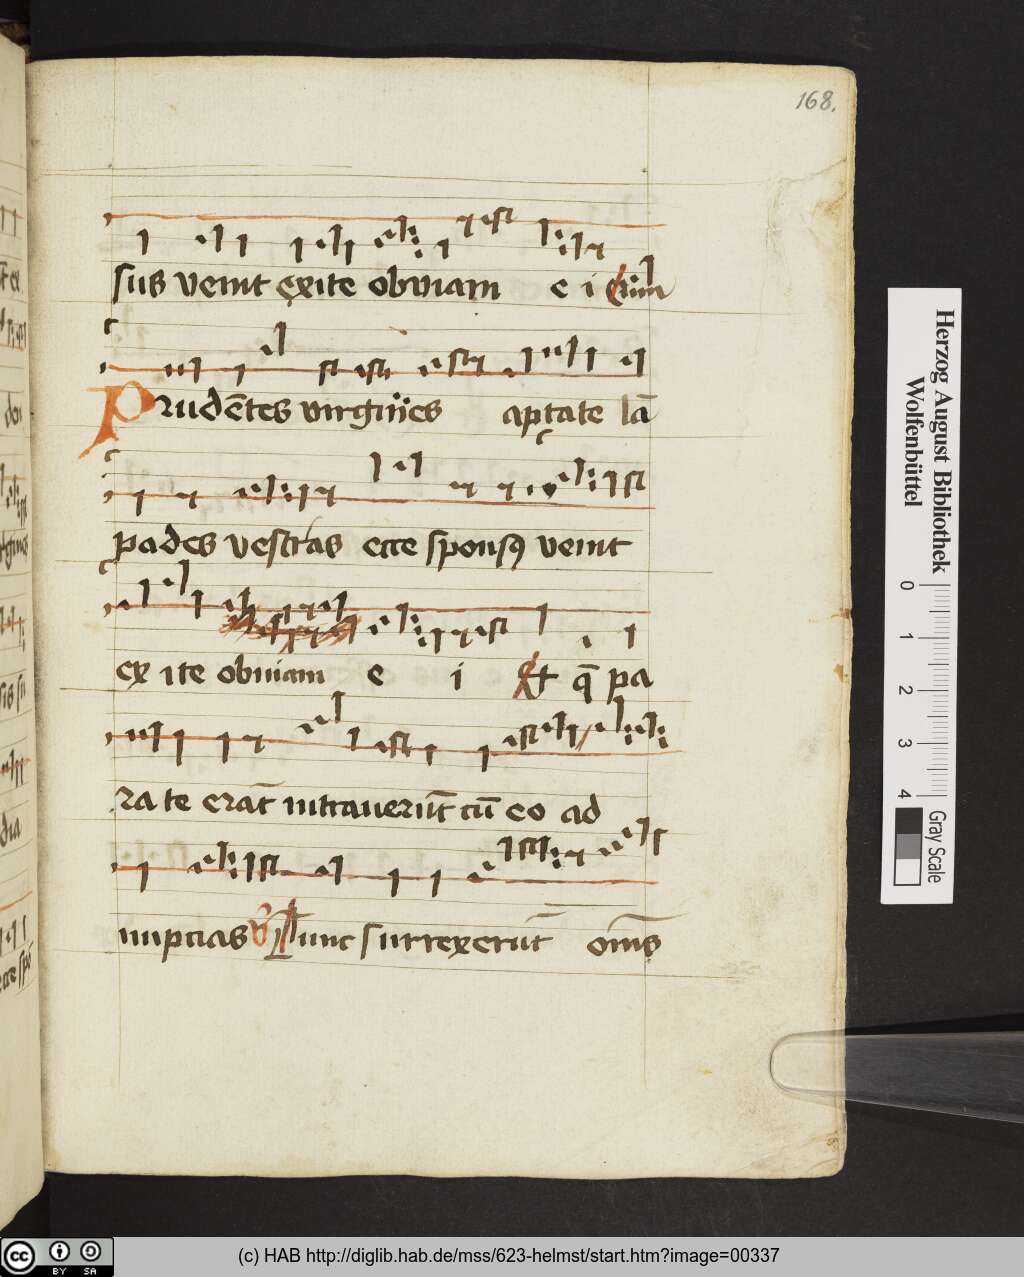 168.
sus venit exite obviam e i
Prudētes virgines aptate lā
pades vestras ecce sponsꝯ venit
ex ite obviam e i Et q̄ pa
ra te erāt intraverūt cū eo ad
nupcias Tunc surrexerūt om̄s
Herzog August Bibliothek
Wolfenbüttel
0 1 2 3 4
Gray Scale
cc BY SA
(c) HAB http://diglib.hab.de/mss/623-helmst/start.htm?image=00337